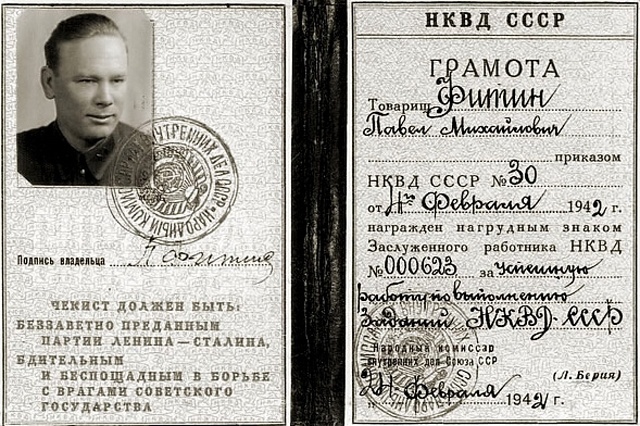 НАРОДНЫЙ КОМИССАРИАТ ВНУТРЕННИХ ДЕЛ СССР
Подпись владельца П Фитин
ЧЕКИСТ ДОЛЖЕН БЫТЬ:
БЕЗЗАВЕТНО ПРЕДАННЫМ
ПАРТИИ ЛЕНИНА—СТАЛИНА,
БДИТЕЛЬНЫМ
И БЕСПОЩАДНЫМ В БОРЬБЕ
С ВРАГАМИ СОВЕТСКОГО
ГОСУДАРСТВА
НКВД СССР
ГРАМОТА
Товарищ Фитин
Павел Михайлович
приказом
НКВД СССР № 30
от Февраля 1942 г.
награжден нагрудным знаком
Заслуженного работника НКВД
№ 000623 за Успешную
работу по выполнению
Заданий НКВД-СССР
Народный комиссар
внутренних дел Союза ССР
(Л. Берия)
Февраля 1942 г.